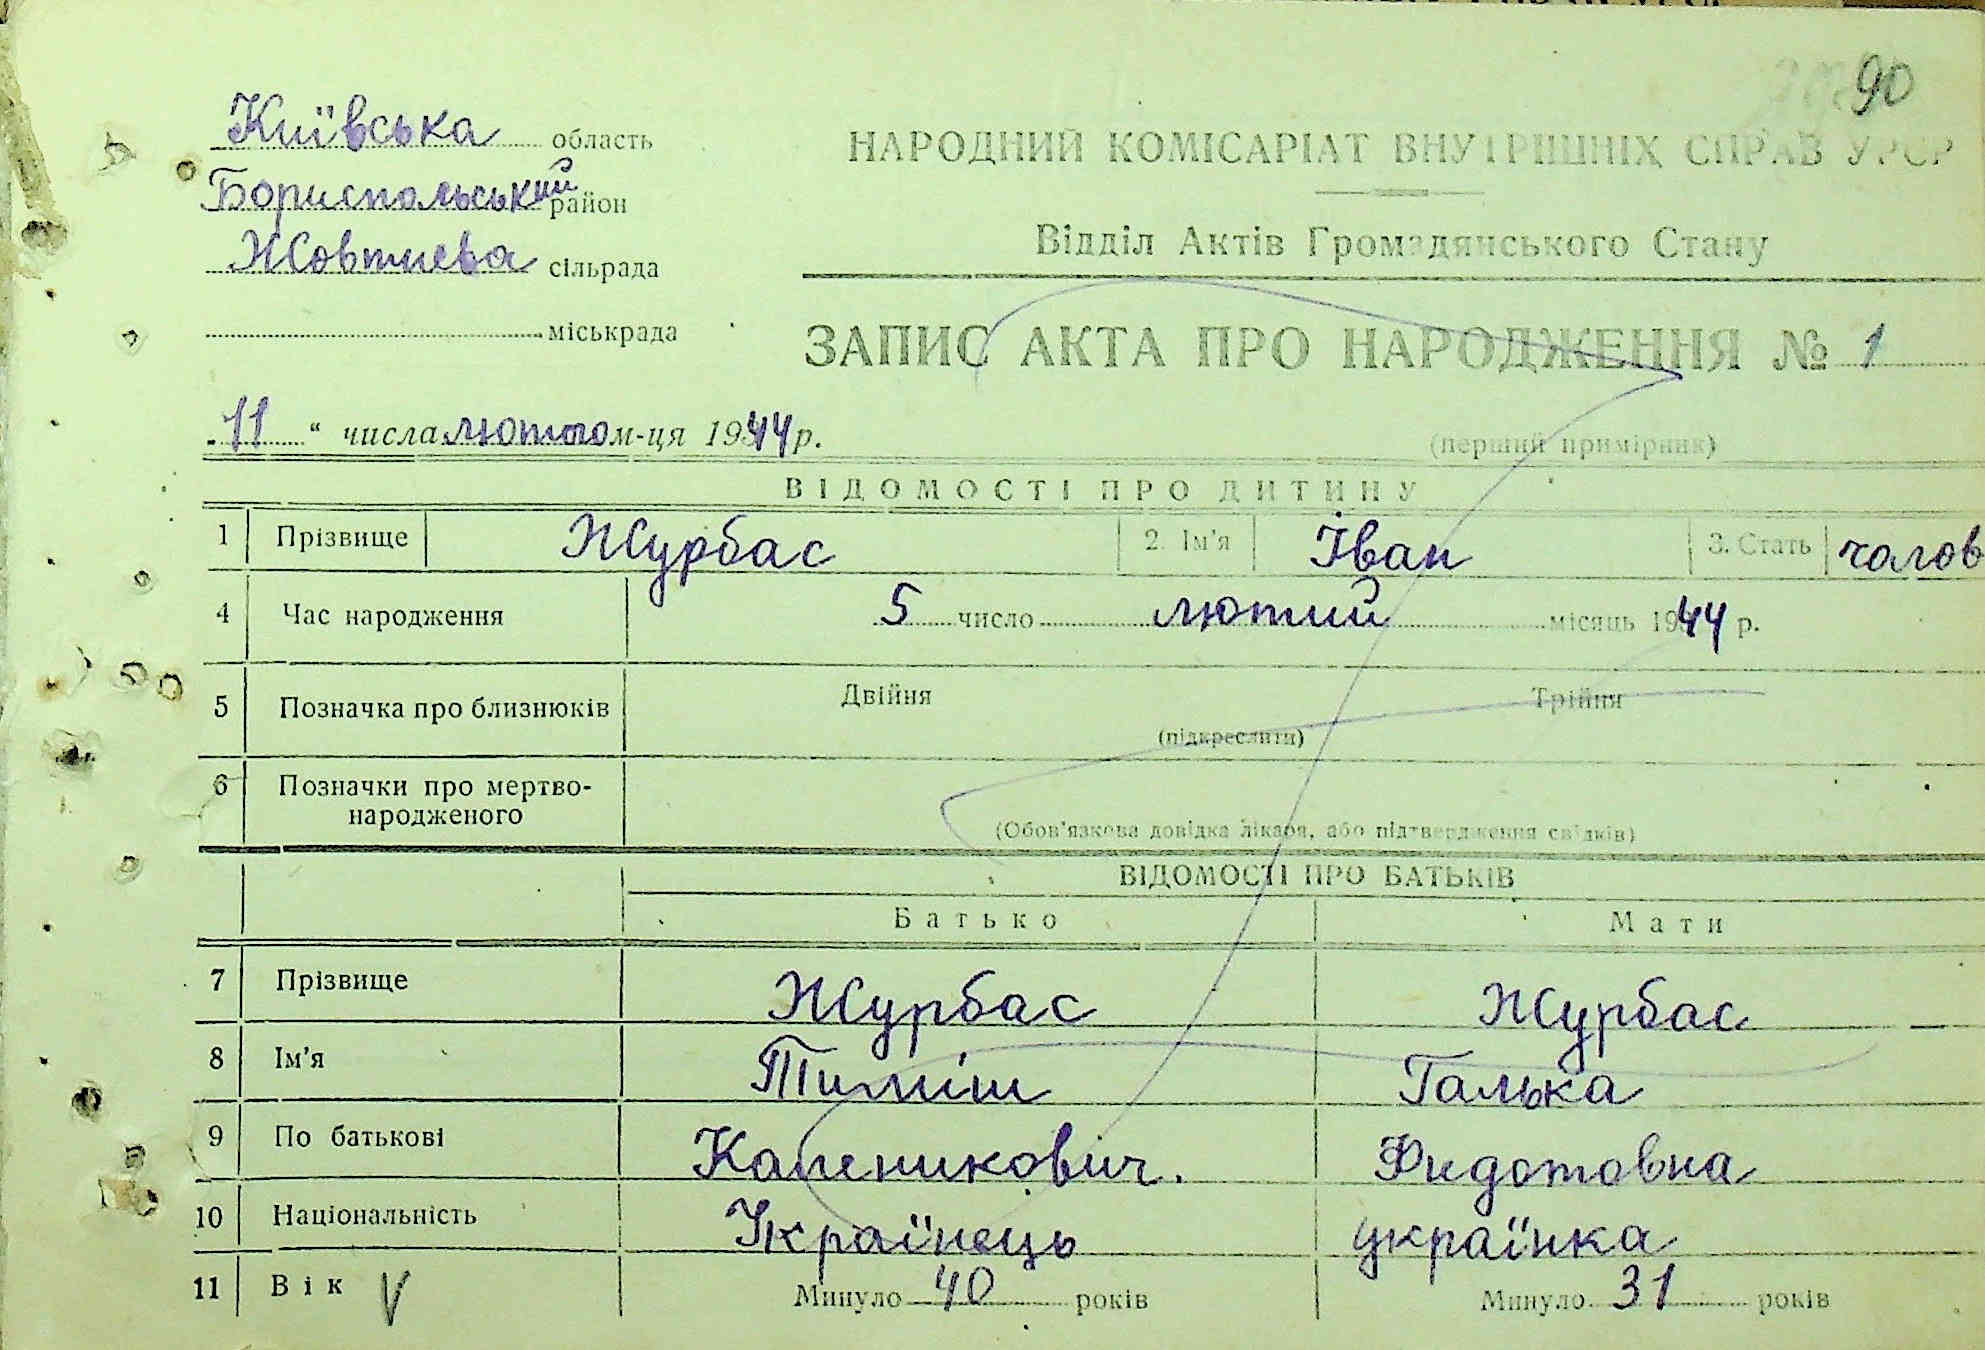 90
Київська область
Бориспольський район
Жовтнева сільрада
міськрада
НАРОДНИЙ КОМІСАРІАТ ВНУТРІШНІХ СПРАВ УРСР
Відділ Актів Громадянського Стану
ЗАПИС АКТА ПРО НАРОДЖЕННЯ № 1
„11“ числа лютого м-ця 1944 р.
(перший примірник)
ВІДОМОСТІ ПРО ДИТИНУ
1 Прізвище Журбас 2. Ім'я Іван 3. Стать чолов
4 Час народження 5 число лютий місяць 1944 р.
5 Позначка про близнюків Двійня Трійня
(підкреслити)
6 Позначки про мертво-
народженого
(Обов'язкова довідка лікаря, або підтвердження свідків)
ВІДОМОСТІ ПРО БАТЬКІВ
Батько Мати
7 Прізвище Журбас Журбас
8 Ім'я Тиміш Галька
9 По батькові Капеникович. Фидотовна
10 Національність Українець українка
11 Вік V Минуло 40 років Минуло 31 років